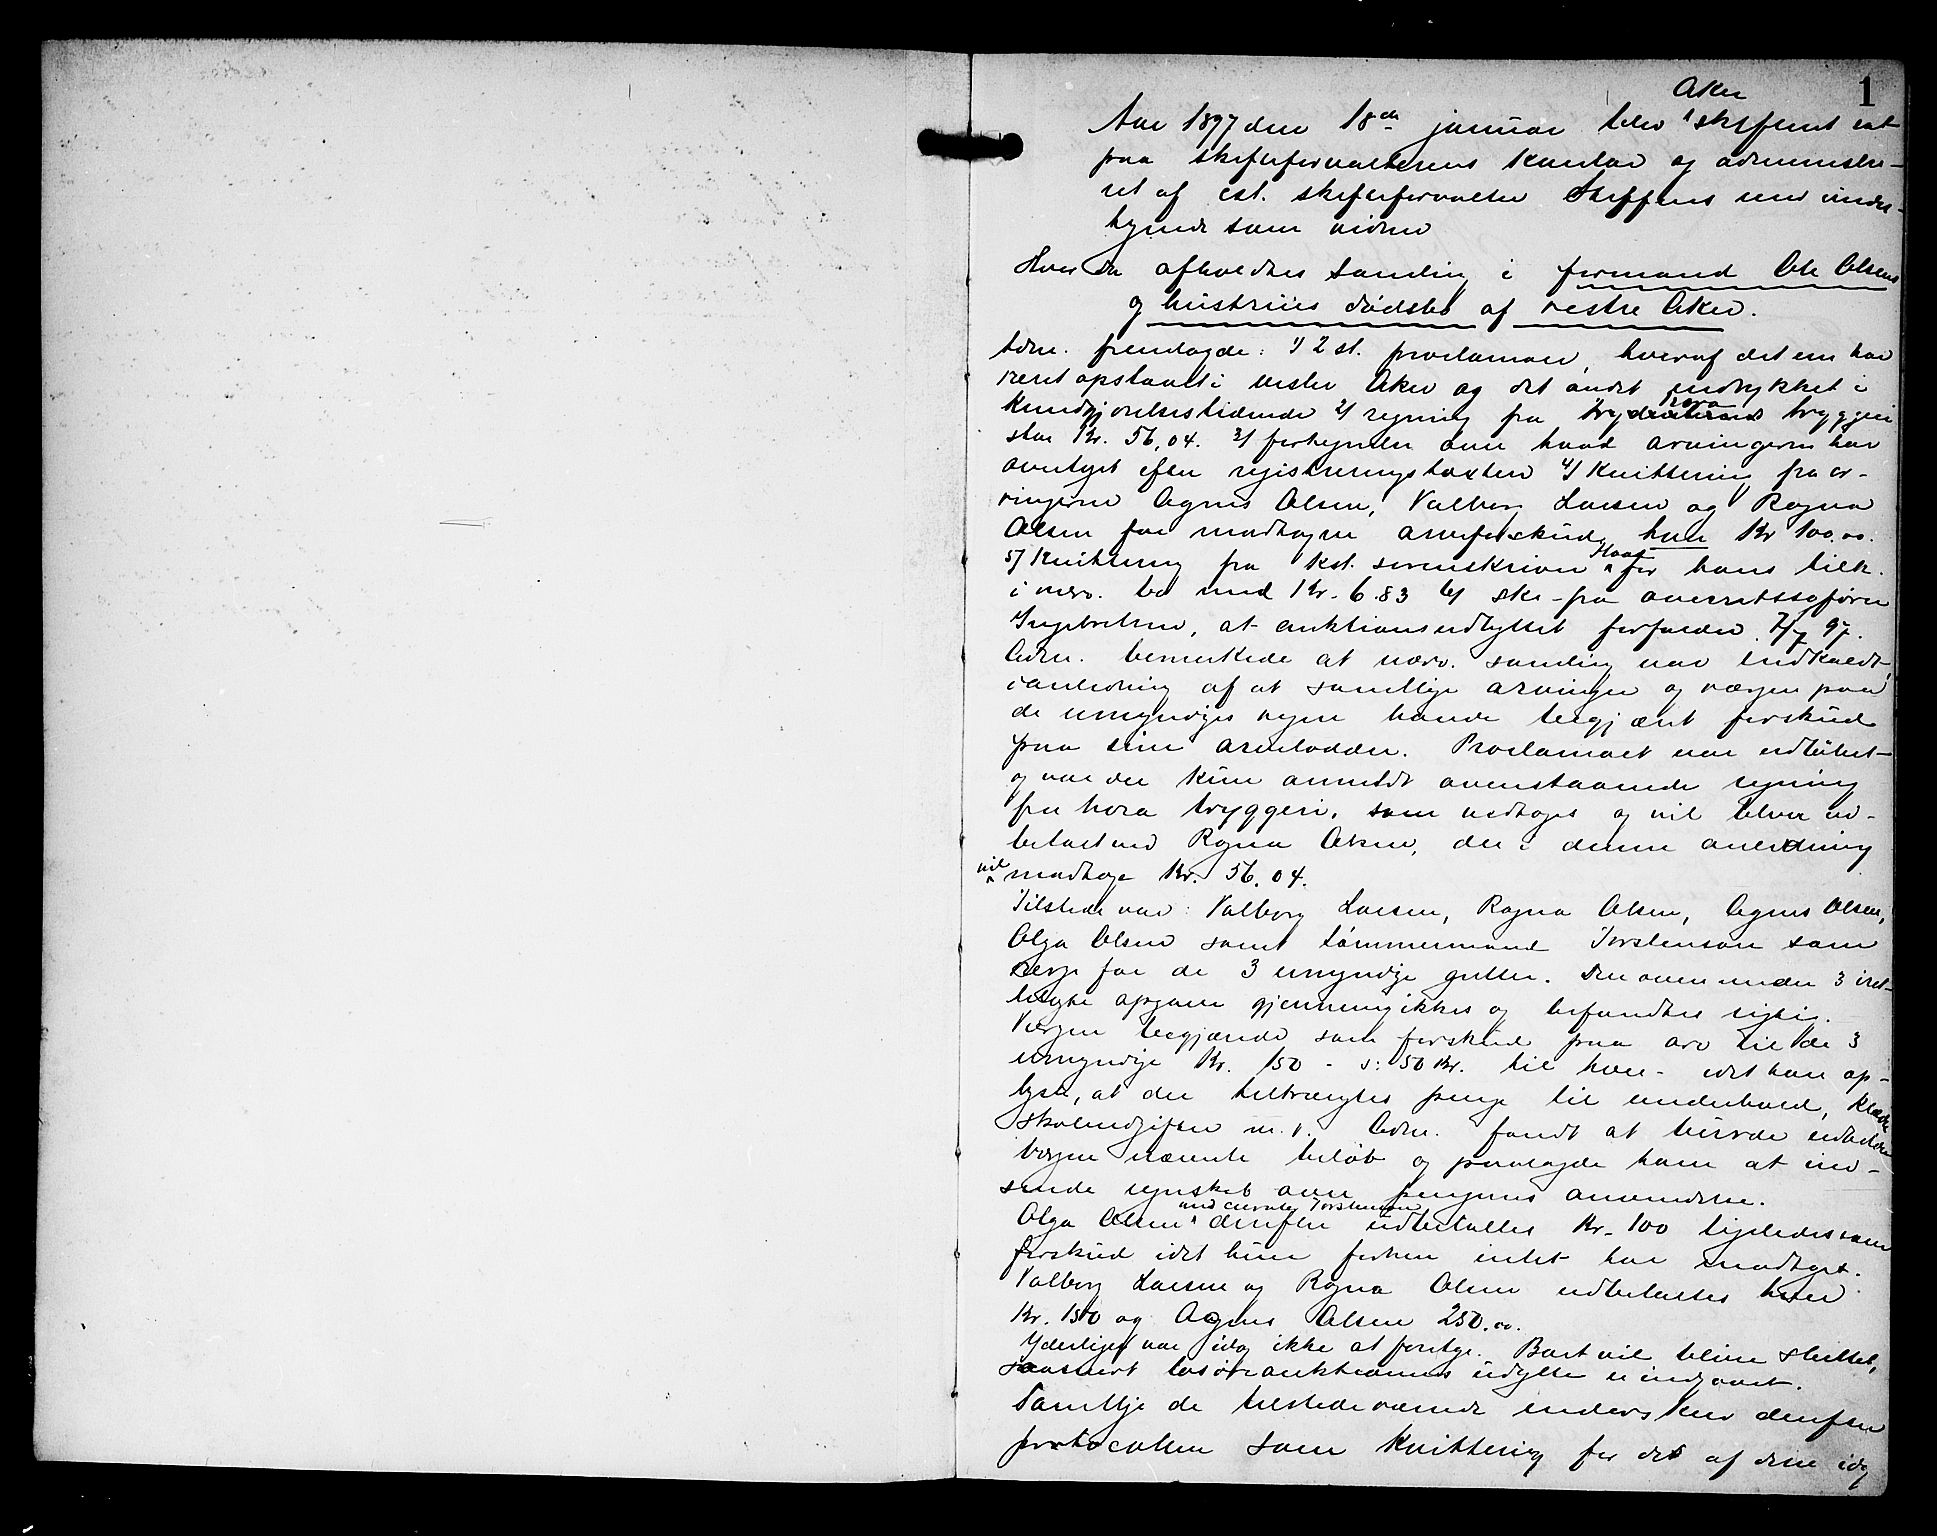 1
Aker
Aar 1897 den 18de januar blev skifteret sat
paa skifteforvalterens kontor og administre-
ret af cst. skifteforvalter Steffens med under-
tegnede som vidne
Hvor da afholdtes samling i formand Ole Olsens
og hustrues dødsbo af vestre Aker.
Adm. fremlagde: 1/ 2 st. proclamaer, hvoraf det ene har
været opslaaet i vestre Aker og det andet indrykket i
Hora
Kundgjørelsestidende 2/ regning fra bryggeri
stor Kr. 56,04. 3/ fortegnelse over hvad arvingerne har
overtaget efter registreringstaxten 4/ Kvittering fra ar-
vingerne Agnes Olsen, Valborg Larsen og Ragna
Olsen for modtagne arveforskud, hver Kr 100.00.
5/ Kvittering fra kst. sorenskriver for hans tilh.
i nærv. bo med Kr. 6.83 6/ skr. fra overretssagfører
Ingebretsen, at auktionsudbyttet forfalder 7/7 97.
Adm. bemerkede at nærv. samling var indkaldt
i anledning af at samtlige arvinger og værgen paa
de umyndiges vegne havde begjært forskud
paa sine arvelodder. Proclamaet var udløbet
og var der kun anmeldt ovenstaaende regning
fra Hora bryggeri, som vedtoges og vil blive ud-
betalt ved Ragna Olsen, der i denne anledning
vil
modtage Kr. 56.04.
Tilstede var: Valborg Larsen, Ragna Olsen, Agnes Olsen,
Olga Olsen samt tømmermand Torstensen som
verge for de 3 umyndige gutter. Den ovenunder 3 iret-
telagte opgave gjennemgikkes og befandtes rigtig.
Værgen begjærede som forskud paa arv til de 3
umyndige Kr. 150 - s: 50 Kr. til hver - idet han op-
lyste, at der tiltrængtes penge til underhold, klæder
skoleudgifter m.v. Adm. fandt at burde udbetale
værgen nævnte beløb og paalagde ham at ind-
sende regnskab over pengenes anvendelse.
med curator Torstensen
Olga Olsen derefter udbetaltes Kr. 100 ligeledes som
forskud idet hun forhen intet har modtaget.
Valborg Larsen og Ragna Olsen udbetaltes hver
Kr. 150 og Agnes Olsen 250.00.
Yderligere var idag ikke at foretage. Boet vil blive sluttet,
saasnart løsøreauktionens udbytte er indgaaet.
Samtlige de tilstedeværende underskrev derefter
protocolen som kvittering for det af disse idag